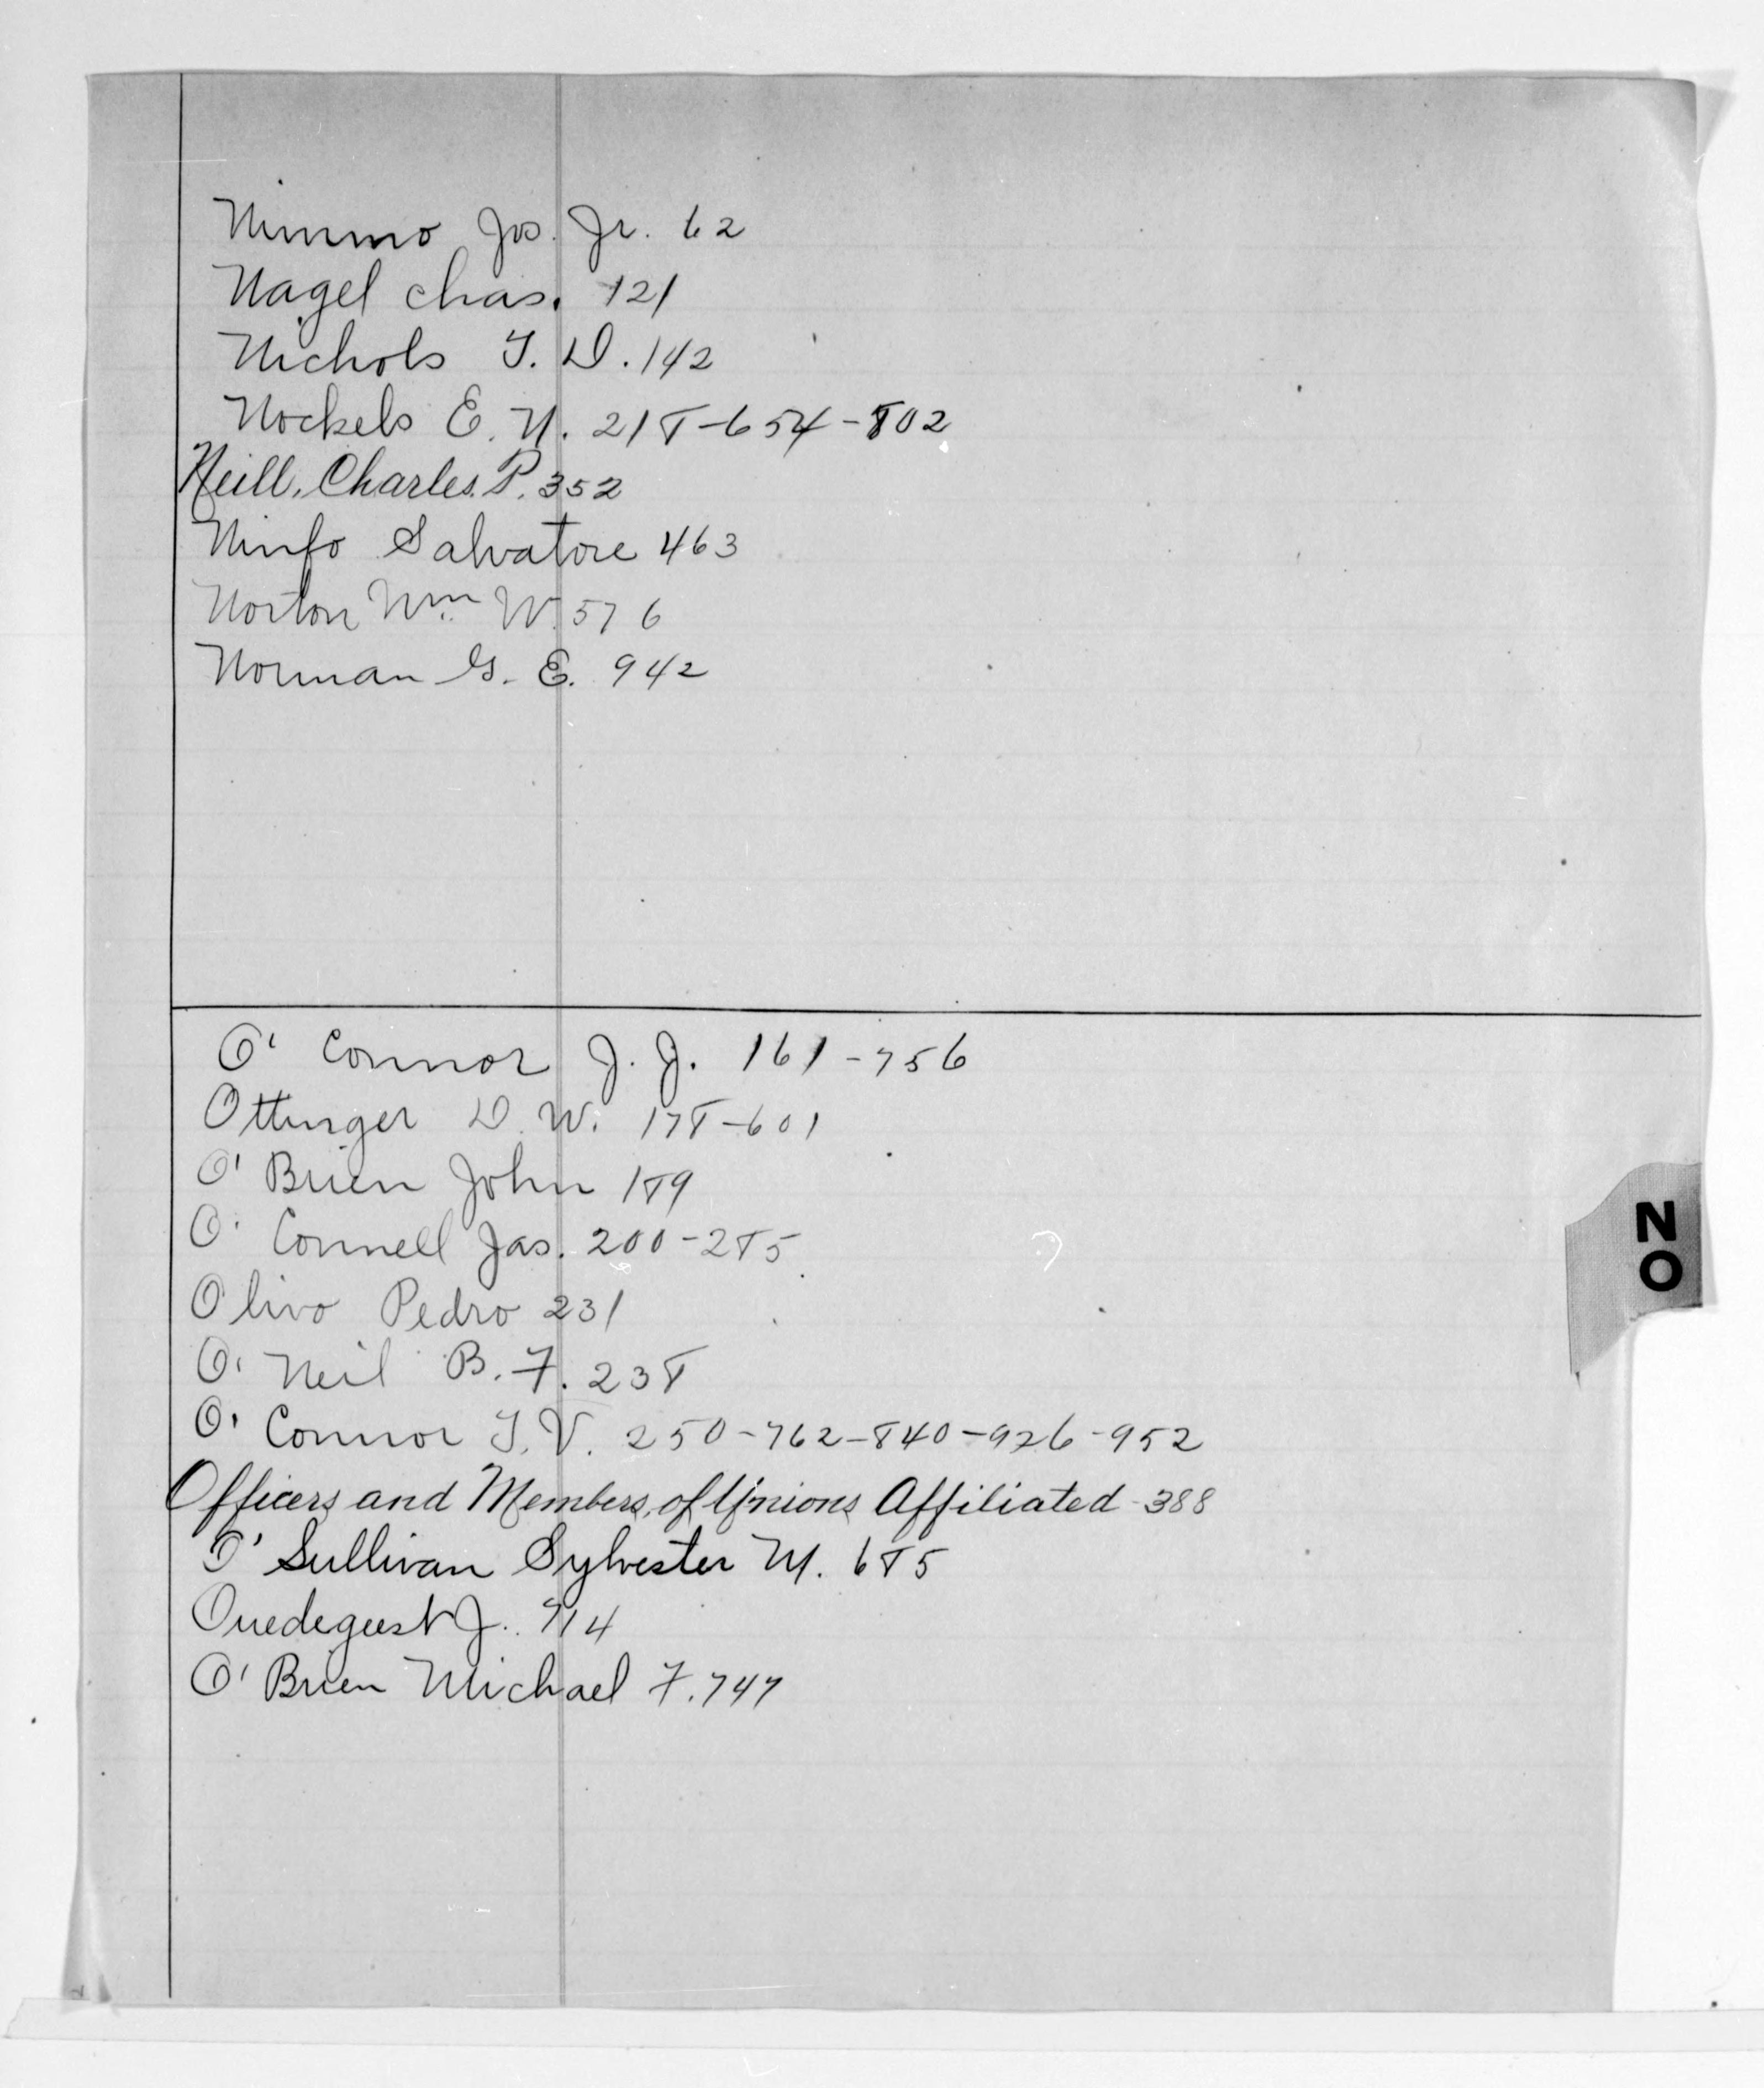 Nimmo Jos. Jr. 62
Nagel Chas. 121
Nichols T. D. 142
Nockels E. N. 218-654-802
Neill, Charles. P. 352
Ninfo Salvatore 463
Norton Wm W. 576
Norman G. E. 942
O' Connor J. J. 161-756
Ottinger D. W. 178-601
O' Brien John 189
O' Connell Jas. 200-285
Olivo Pedro 231
O' Neil B. F. 238
O' Connor T. V. 250-762-840-926-952
Officers and Members, of Unions Affiliated 388
O' Sullivan Sylvester M. 685
Oudegeest J. 714
O' Brien Michael F. 747
N
O